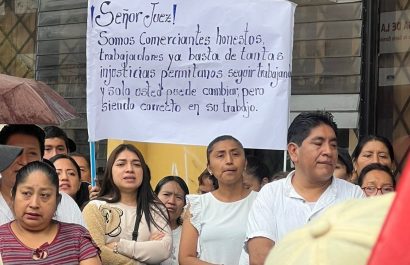 ¡Señor Juez!
Somos Comerciantes honestos
trabajadores ya basta de tantas
injusticias permitanos seguir trabajand
y solo usted puede cambiar, pero
siendo correcto en su trabajo.
DE LA